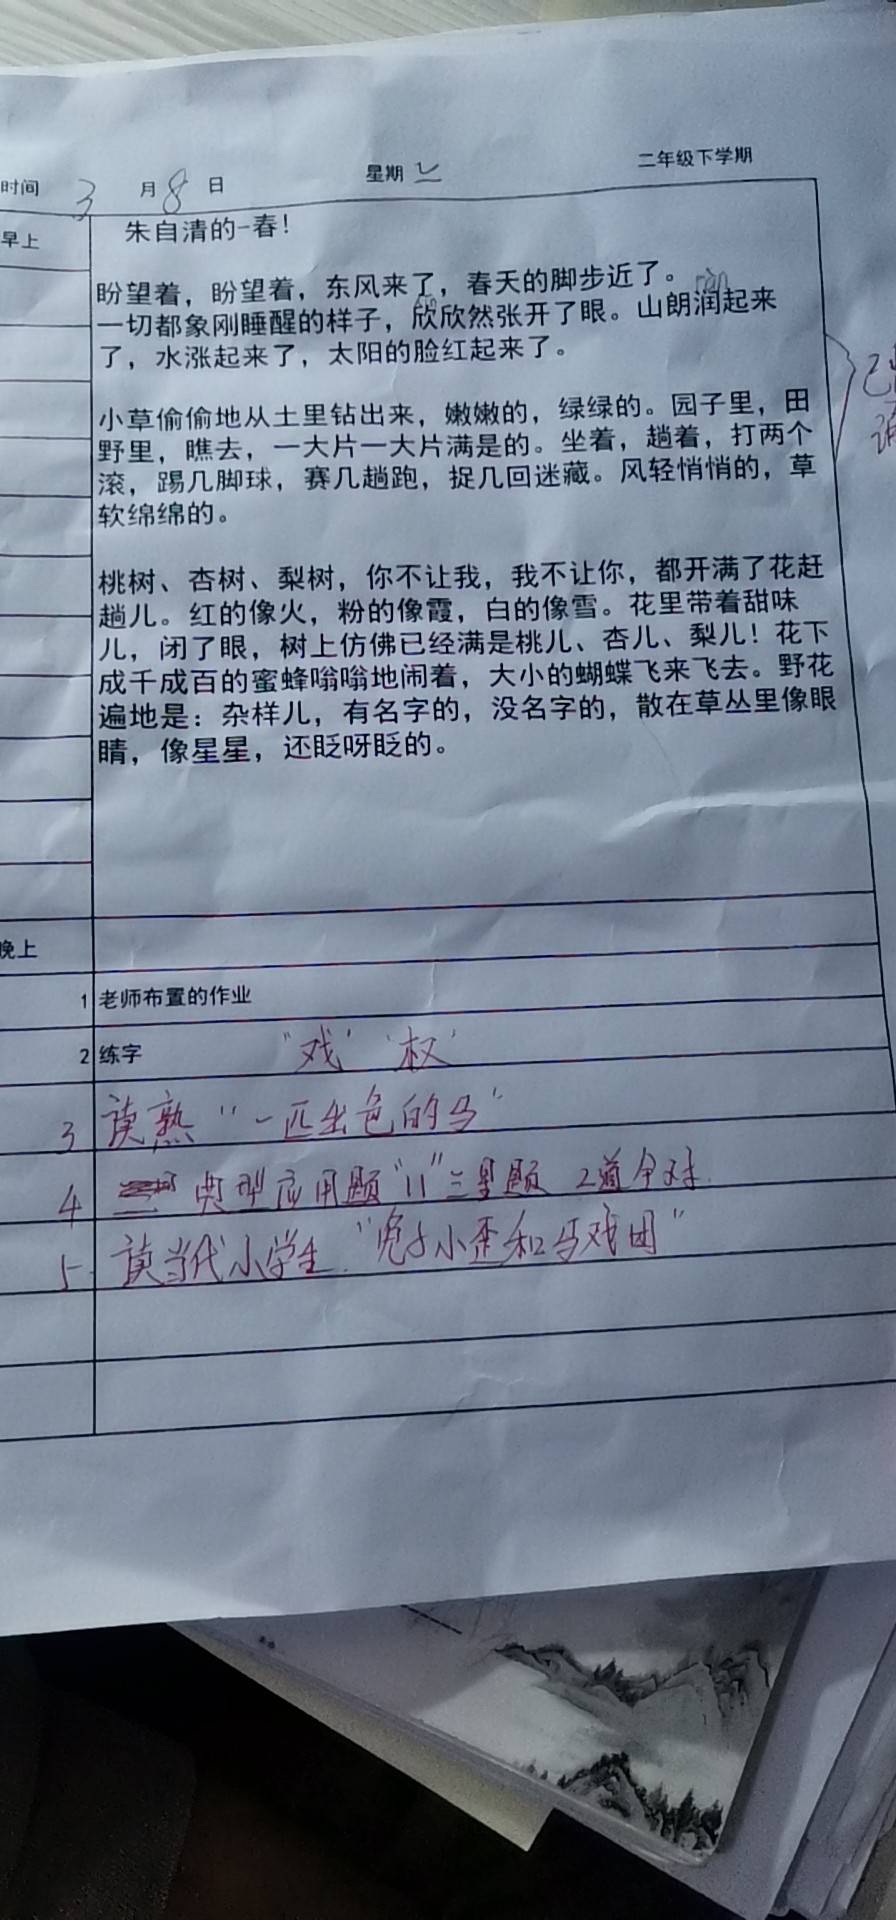 时间 3 月 8 日 星期二 二年级下学期
早上
朱自清的-春！
盼望着，盼望着，东风来了，春天的脚步近了。
一切都象刚睡醒的样子，欣欣然张开了眼。山朗润起来
了，水涨起来了，太阳的脸红起来了。
小草偷偷地从土里钻出来，嫩嫩的，绿绿的。园子里，田
野里，瞧去，一大片一大片满是的。坐着，趟着，打两个
滚，踢几脚球，赛几趟跑，捉几回迷藏。风轻悄悄的，草
软绵绵的。
桃树、杏树、梨树，你不让我，我不让你，都开满了花赶
趟儿。红的像火，粉的像霞，白的像雪。花里带着甜味
儿，闭了眼，树上仿佛已经满是桃儿、杏儿、梨儿！花下
成千成百的蜜蜂嗡嗡地闹着，大小的蝴蝶飞来飞去。野花
遍地是：杂样儿，有名字的，没名字的，散在草丛里像眼
睛，像星星，还眨呀眨的。
晚上
1 老师布置的作业
2 练字 "戏" "权"
3 读熟 "一匹出色的马"
4 典型应用题 "11" 三星题 2道全对
5. 读当代小学生. "兔子小歪和马戏团"